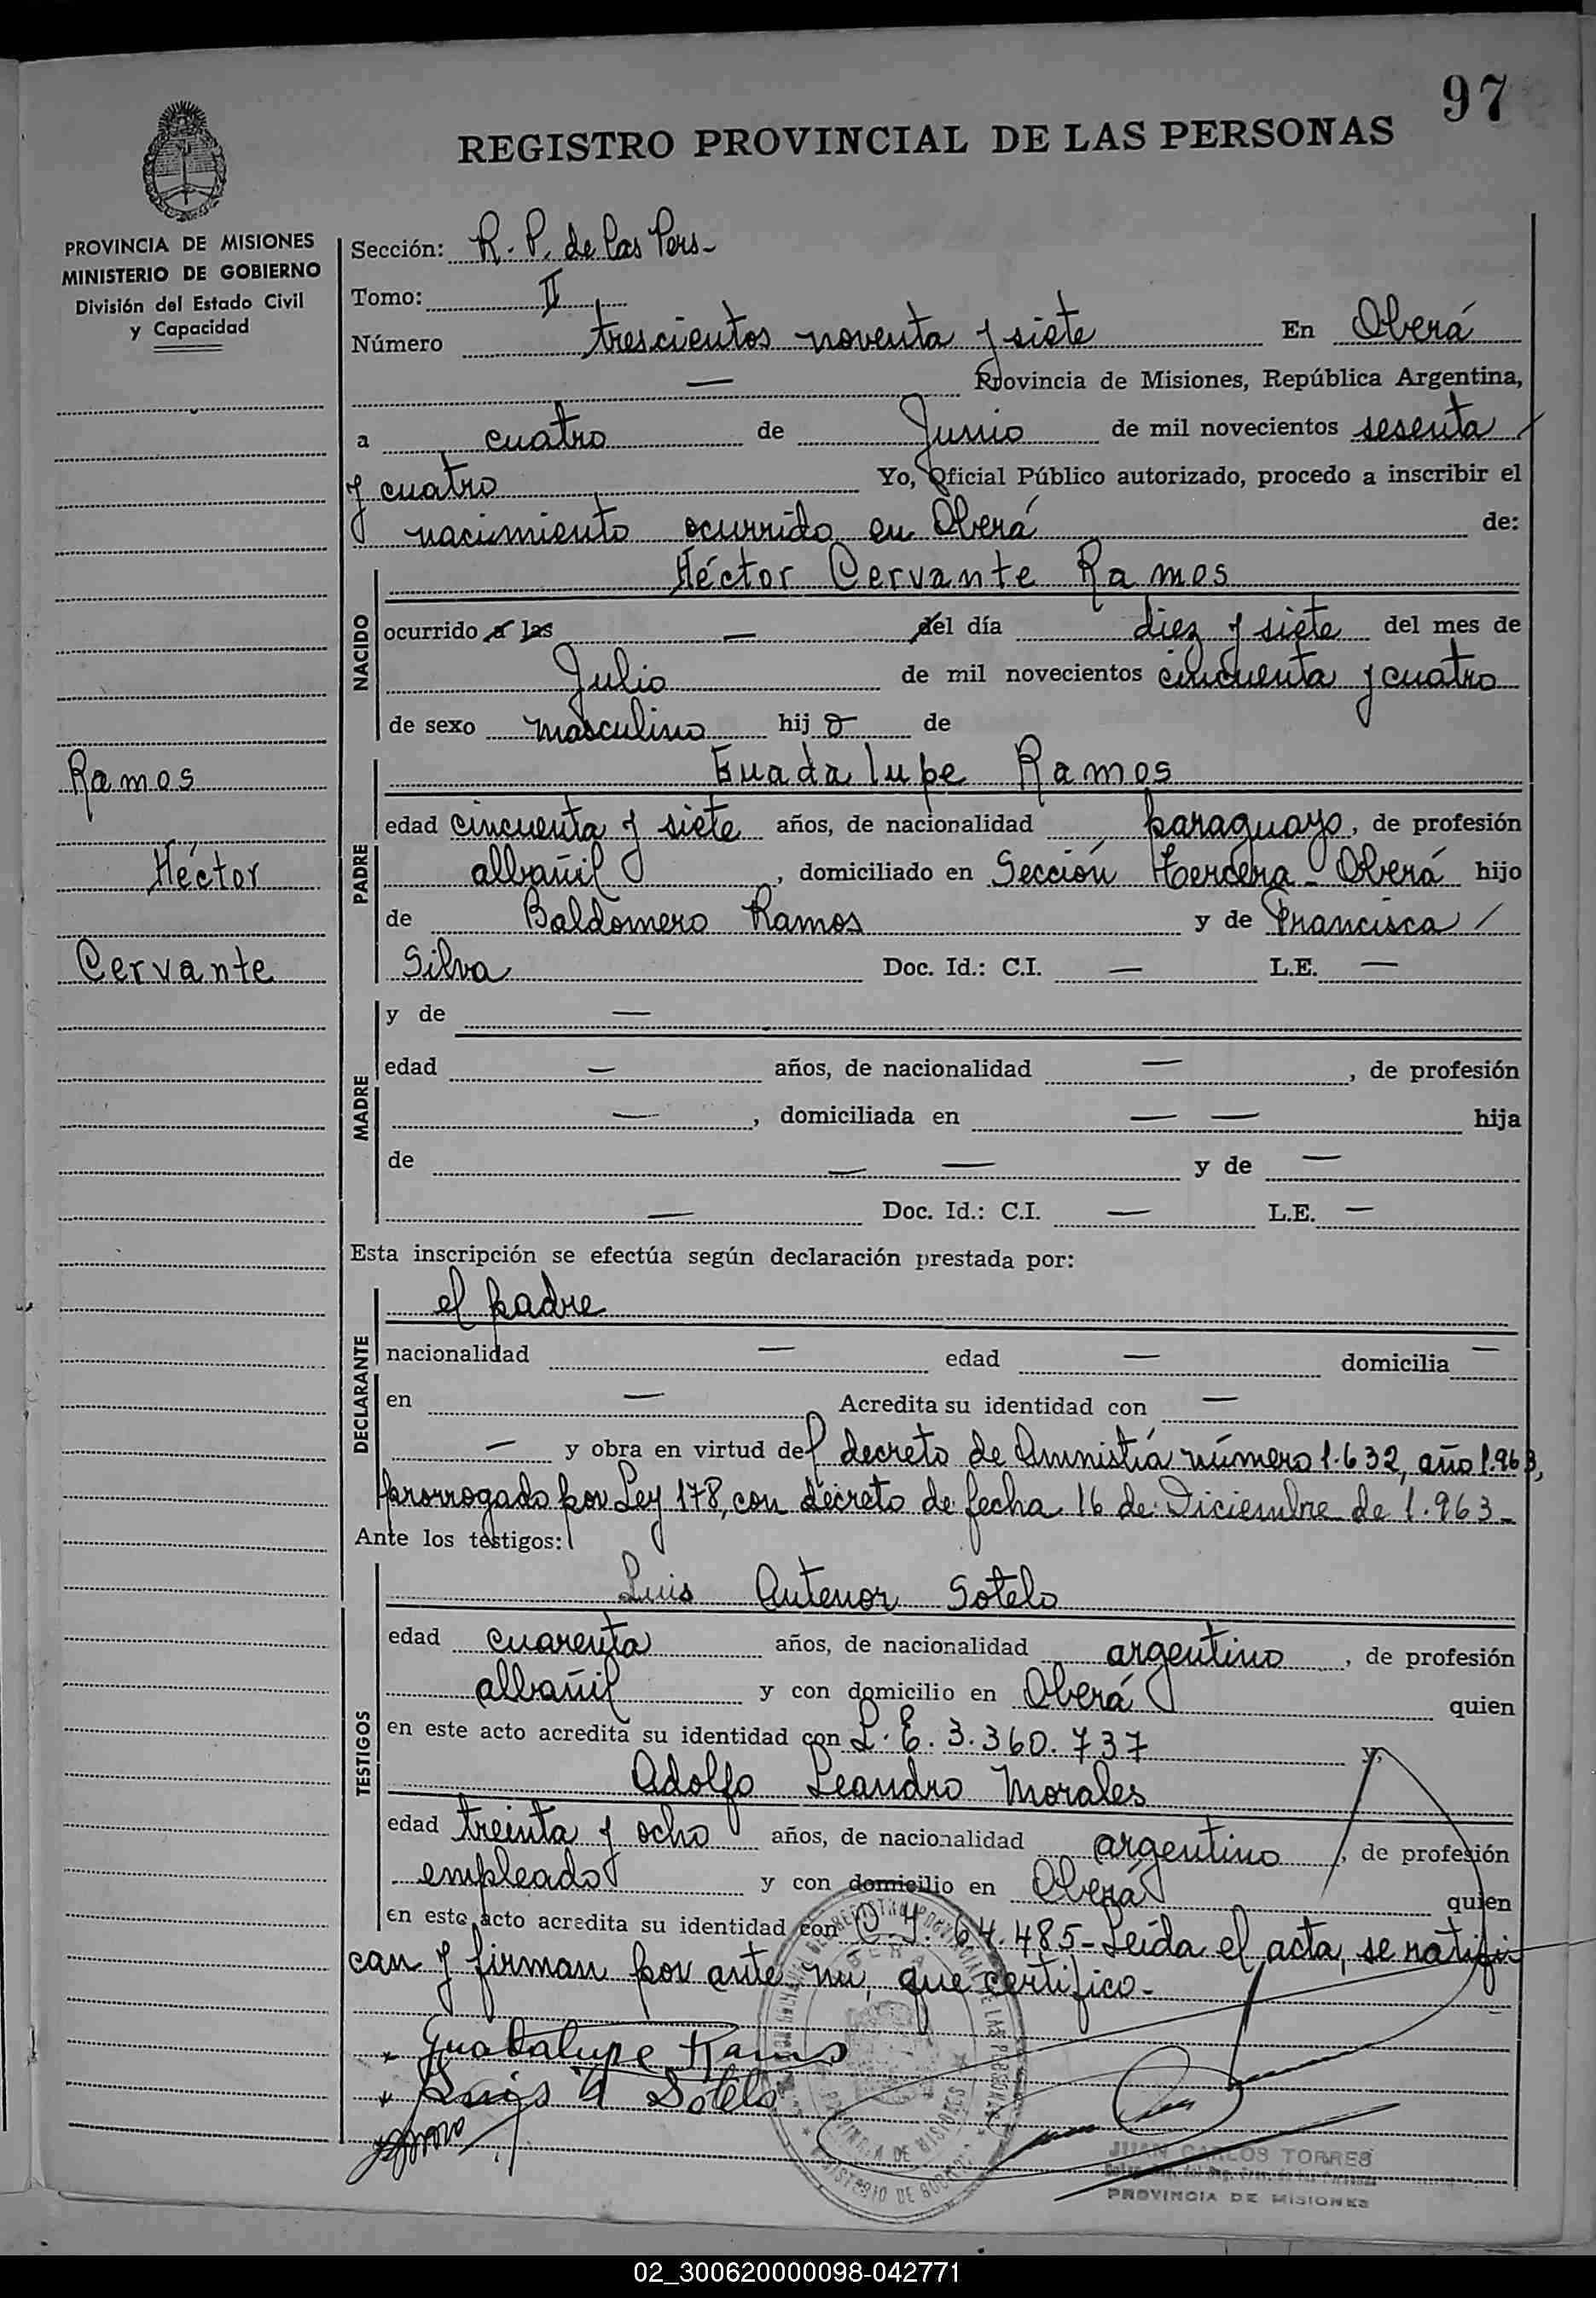 97
REGISTRO PROVINCIAL DE LAS PERSONAS
PROVINCIA DE MISIONES
MINISTERIO DE GOBIERNO
División del Estado Civil
y Capacidad
Sección: R. P. de las Pers-
Tomo: II
Número trescientos noventa y siete En Oberá
— Provincia de Misiones, República Argentina,
a cuatro de Junio de mil novecientos sesenta
y cuatro Yo, Oficial Público autorizado, procedo a inscribir el
nacimiento ocurrido en Oberá de:
NACIDO
Héctor Cervante Ramos
ocurrido a las — del día diez y siete del mes de
Julio de mil novecientos cincuenta y cuatro
de sexo masculino hijo de
Ramos
Héctor
Cervante
PADRE
Guadalupe Ramos
edad cincuenta y siete años, de nacionalidad paraguayo, de profesión
albañil, domiciliado en Sección tercera - Oberá hijo
de Baldomero Ramos y de Francisca /
Silva Doc. Id.: C.I. — L.E. —
MADRE
y de —
edad — años, de nacionalidad —, de profesión
—, domiciliada en — — hija
de — — y de —
— Doc. Id.: C.I. — L.E. —
Esta inscripción se efectúa según declaración prestada por:
DECLARANTE
el padre
nacionalidad — edad — domicilia —
en — Acredita su identidad con —
— y obra en virtud del decreto de Amnistía número 1.632, año 1.963,
prorrogado por Ley 178, con decreto de fecha 16 de Diciembre de 1.963-
Ante los testigos:
TESTIGOS
Luis Antenor Sotelo
edad cuarenta años, de nacionalidad argentino, de profesión
albañil y con domicilio en Oberá quien
en este acto acredita su identidad con L. E. 3.360.737 y,
Adolfo Leandro Morales
edad treinta y ocho años, de nacionalidad argentino, de profesión
empleado y con domicilio en Oberá quien
en este acto acredita su identidad con C. I. 64.485- Leída el acta, se ratifi-
can y firman por ante mi, que certifico.-
Guadalupe Ramos
Luis A Sotelo
JUAN CARLOS TORRES
PROVINCIA DE MISIONES
02_300620000098-042771